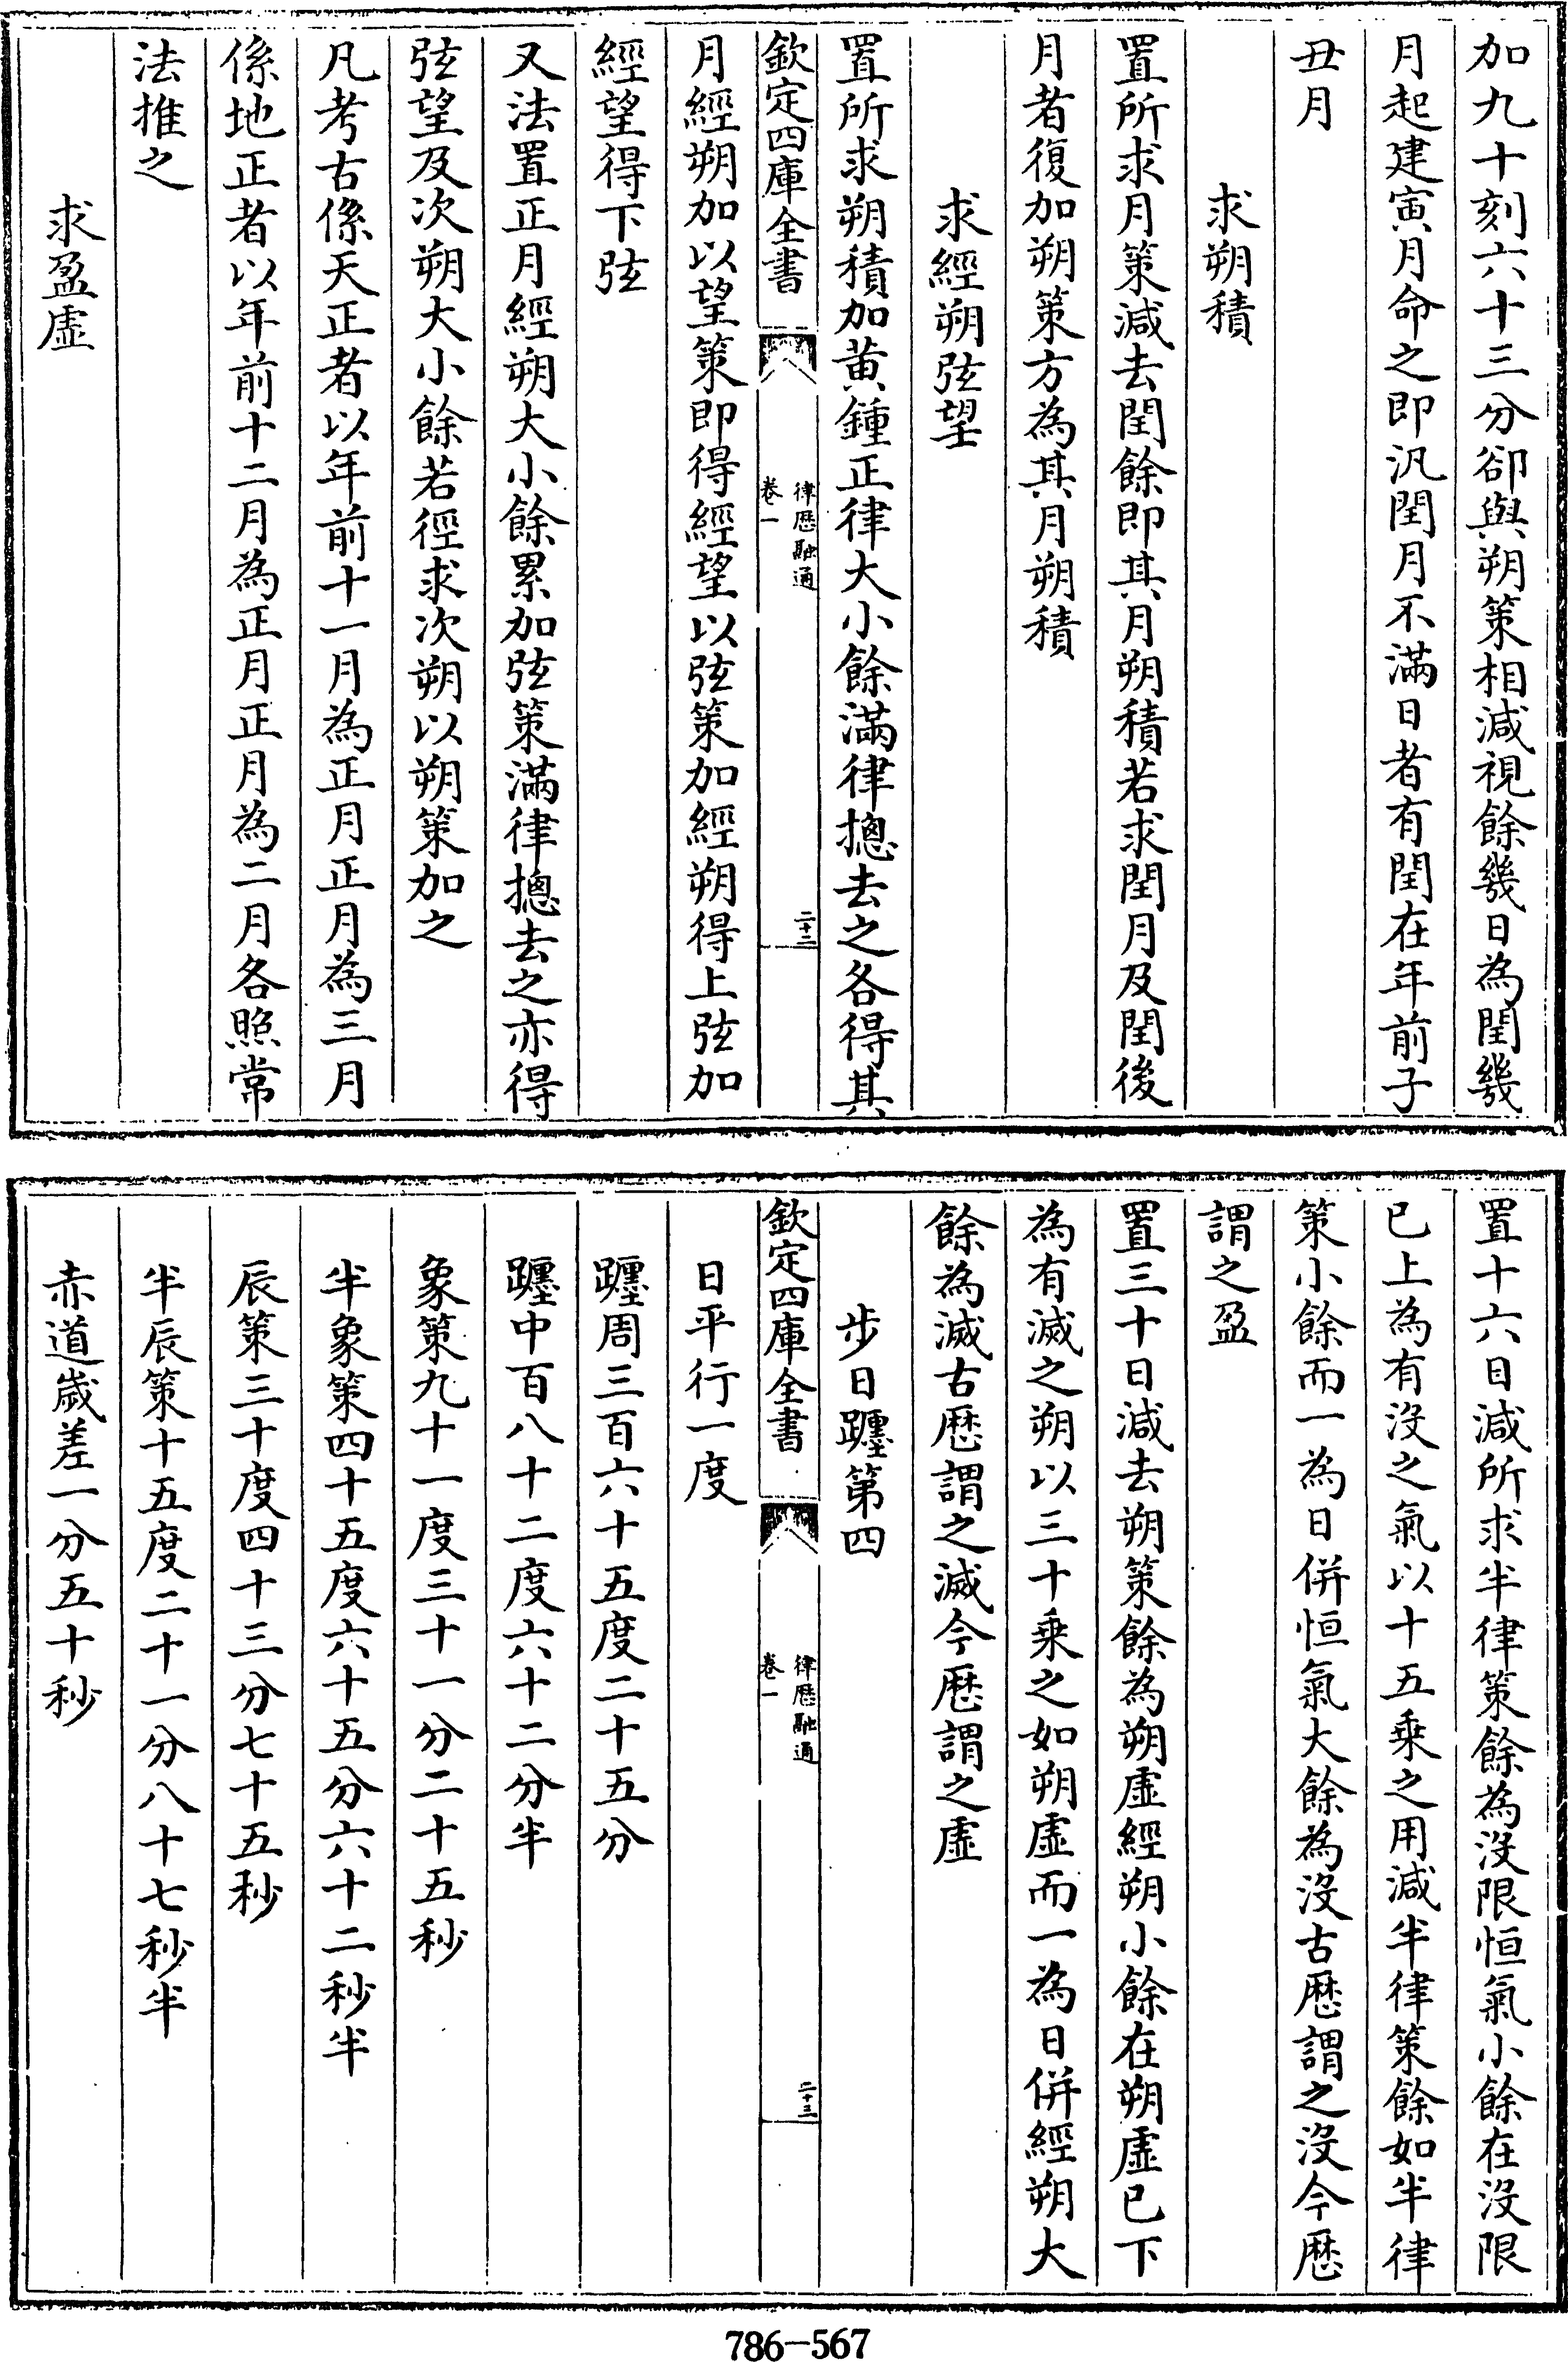 加九十刻六十三分卻與朔策相減視餘幾日為閏幾
月起建寅月命之即汎閏月不滿日者有閏在年前子
丑月
求朔積
置所求月策減去閏餘即其月朔積若求閏月及閏後
月者復加朔策方為其月朔積
求經朔弦望
置所求朔積加黃鍾正律大小餘滿律摠去之各得其
欽定四庫全書
律厯融通
卷一
二十二
月經朔加以望策即得經望以弦策加經朔得上弦加
經望得下弦
又法置正月經朔大小餘累加弦策滿律摠去之亦得
弦望及次朔大小餘若徑求次朔以朔策加之
凡考古係天正者以年前十一月為正月正月為三月
係地正者以年前十二月為正月正月為二月各照常
法推之
求盈虛
置十六日減所求半律策餘為沒限恒氣小餘在沒限
已上為有沒之氣以十五乘之用減半律策餘如半律
策小餘而一為日併恒氣大餘為沒古厯謂之沒今厯
謂之盈
置三十日減去朔策餘為朔虛經朔小餘在朔虛已下
為有滅之朔以三十乘之如朔虛而一為日併經朔大
餘為滅古厯謂之滅今厯謂之虛
步日躔第四
欽定四庫全書
律厯融通
卷一
二十三
日平行一度
躔周三百六十五度二十五分
躔中百八十二度六十二分半
象策九十一度三十一分二十五秒
半象策四十五度六十五分六十二秒半
辰策三十度四十三分七十五秒
半辰策十五度二十一分八十七秒半
赤道歲差一分五十秒
786-567